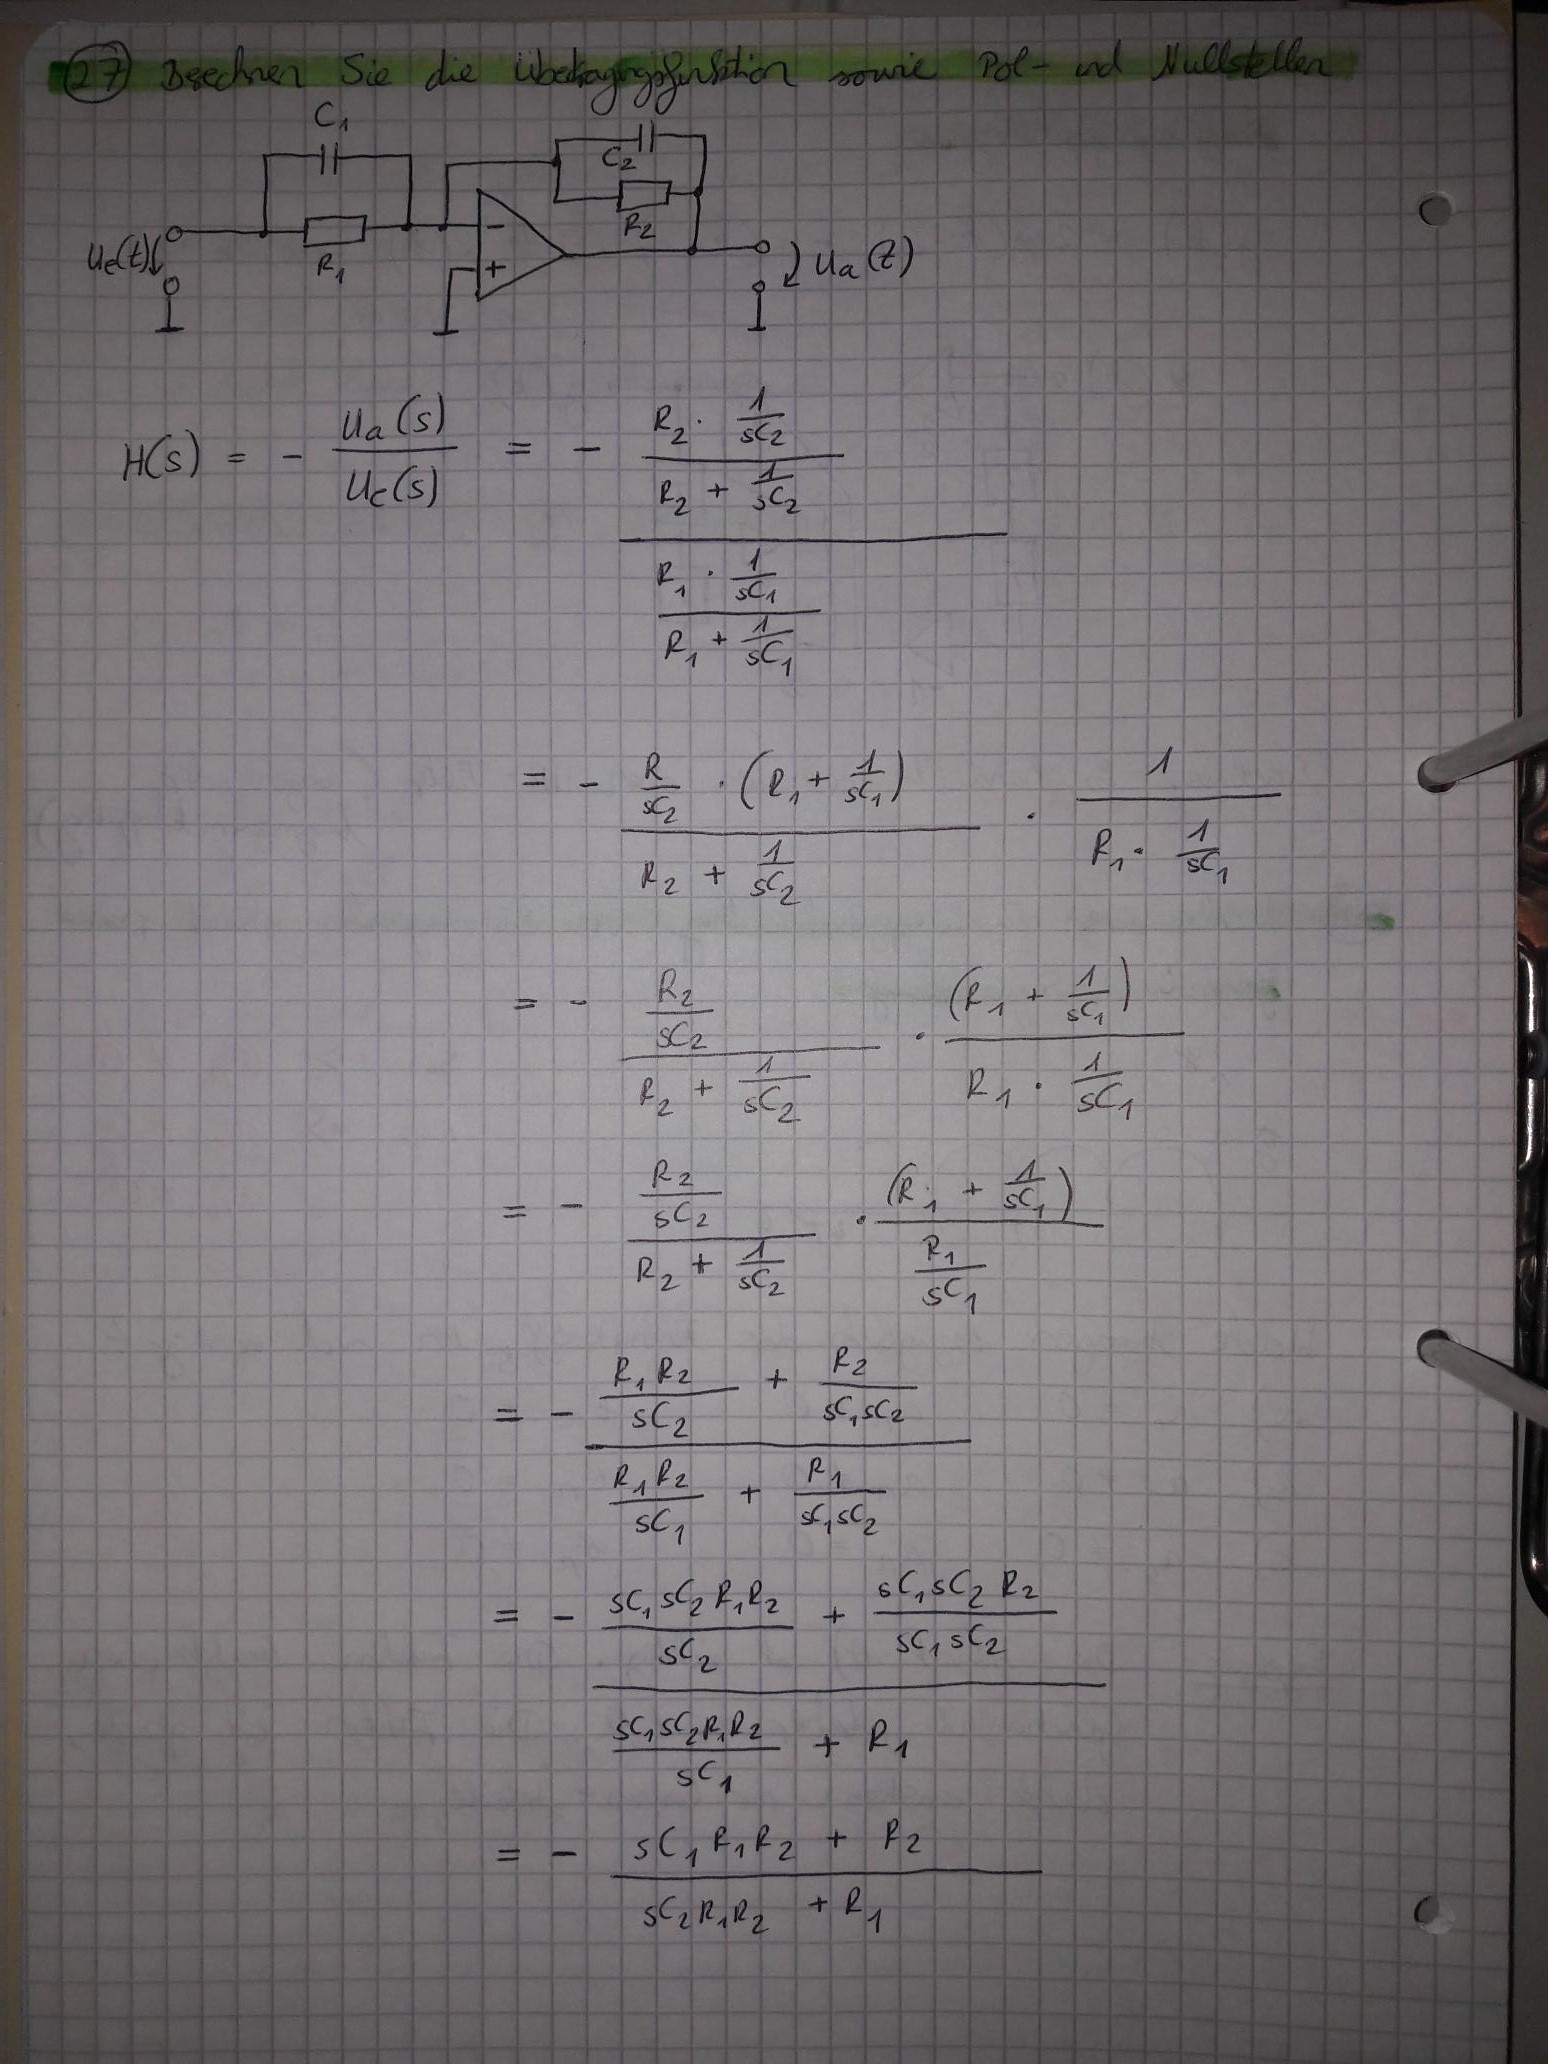 27 Berechnen Sie die Übertragungsfunktion sowie Pol- und Nullstellen
C₁
C₂
R₂
R₁
-
+
Ue(t)
Ua(t)
H(s) = - Ua(s) / Ue(s) = - (R₂ · 1/sC₂ / (R₂ + 1/sC₂)) / (R₁ · 1/sC₁ / (R₁ + 1/sC₁))
= - (R/sC₂ · (R₁ + 1/sC₁)) / (R₂ + 1/sC₂) · 1 / (R₁ · 1/sC₁)
= - (R₂/sC₂) / (R₂ + 1/sC₂) · (R₁ + 1/sC₁) / (R₁ · 1/sC₁)
= - (R₂/sC₂) / (R₂ + 1/sC₂) · (R₁ + 1/sC₁) / (R₁/sC₁)
= - (R₁R₂/sC₂ + R₂/sC₁sC₂) / (R₁R₂/sC₁ + R₁/sC₁sC₂)
= - (sC₁sC₂R₁R₂/sC₂ + sC₁sC₂R₂/sC₁sC₂) / (sC₁sC₂R₁R₂/sC₁ + R₁)
= - (sC₁R₁R₂ + R₂) / (sC₂R₁R₂ + R₁)